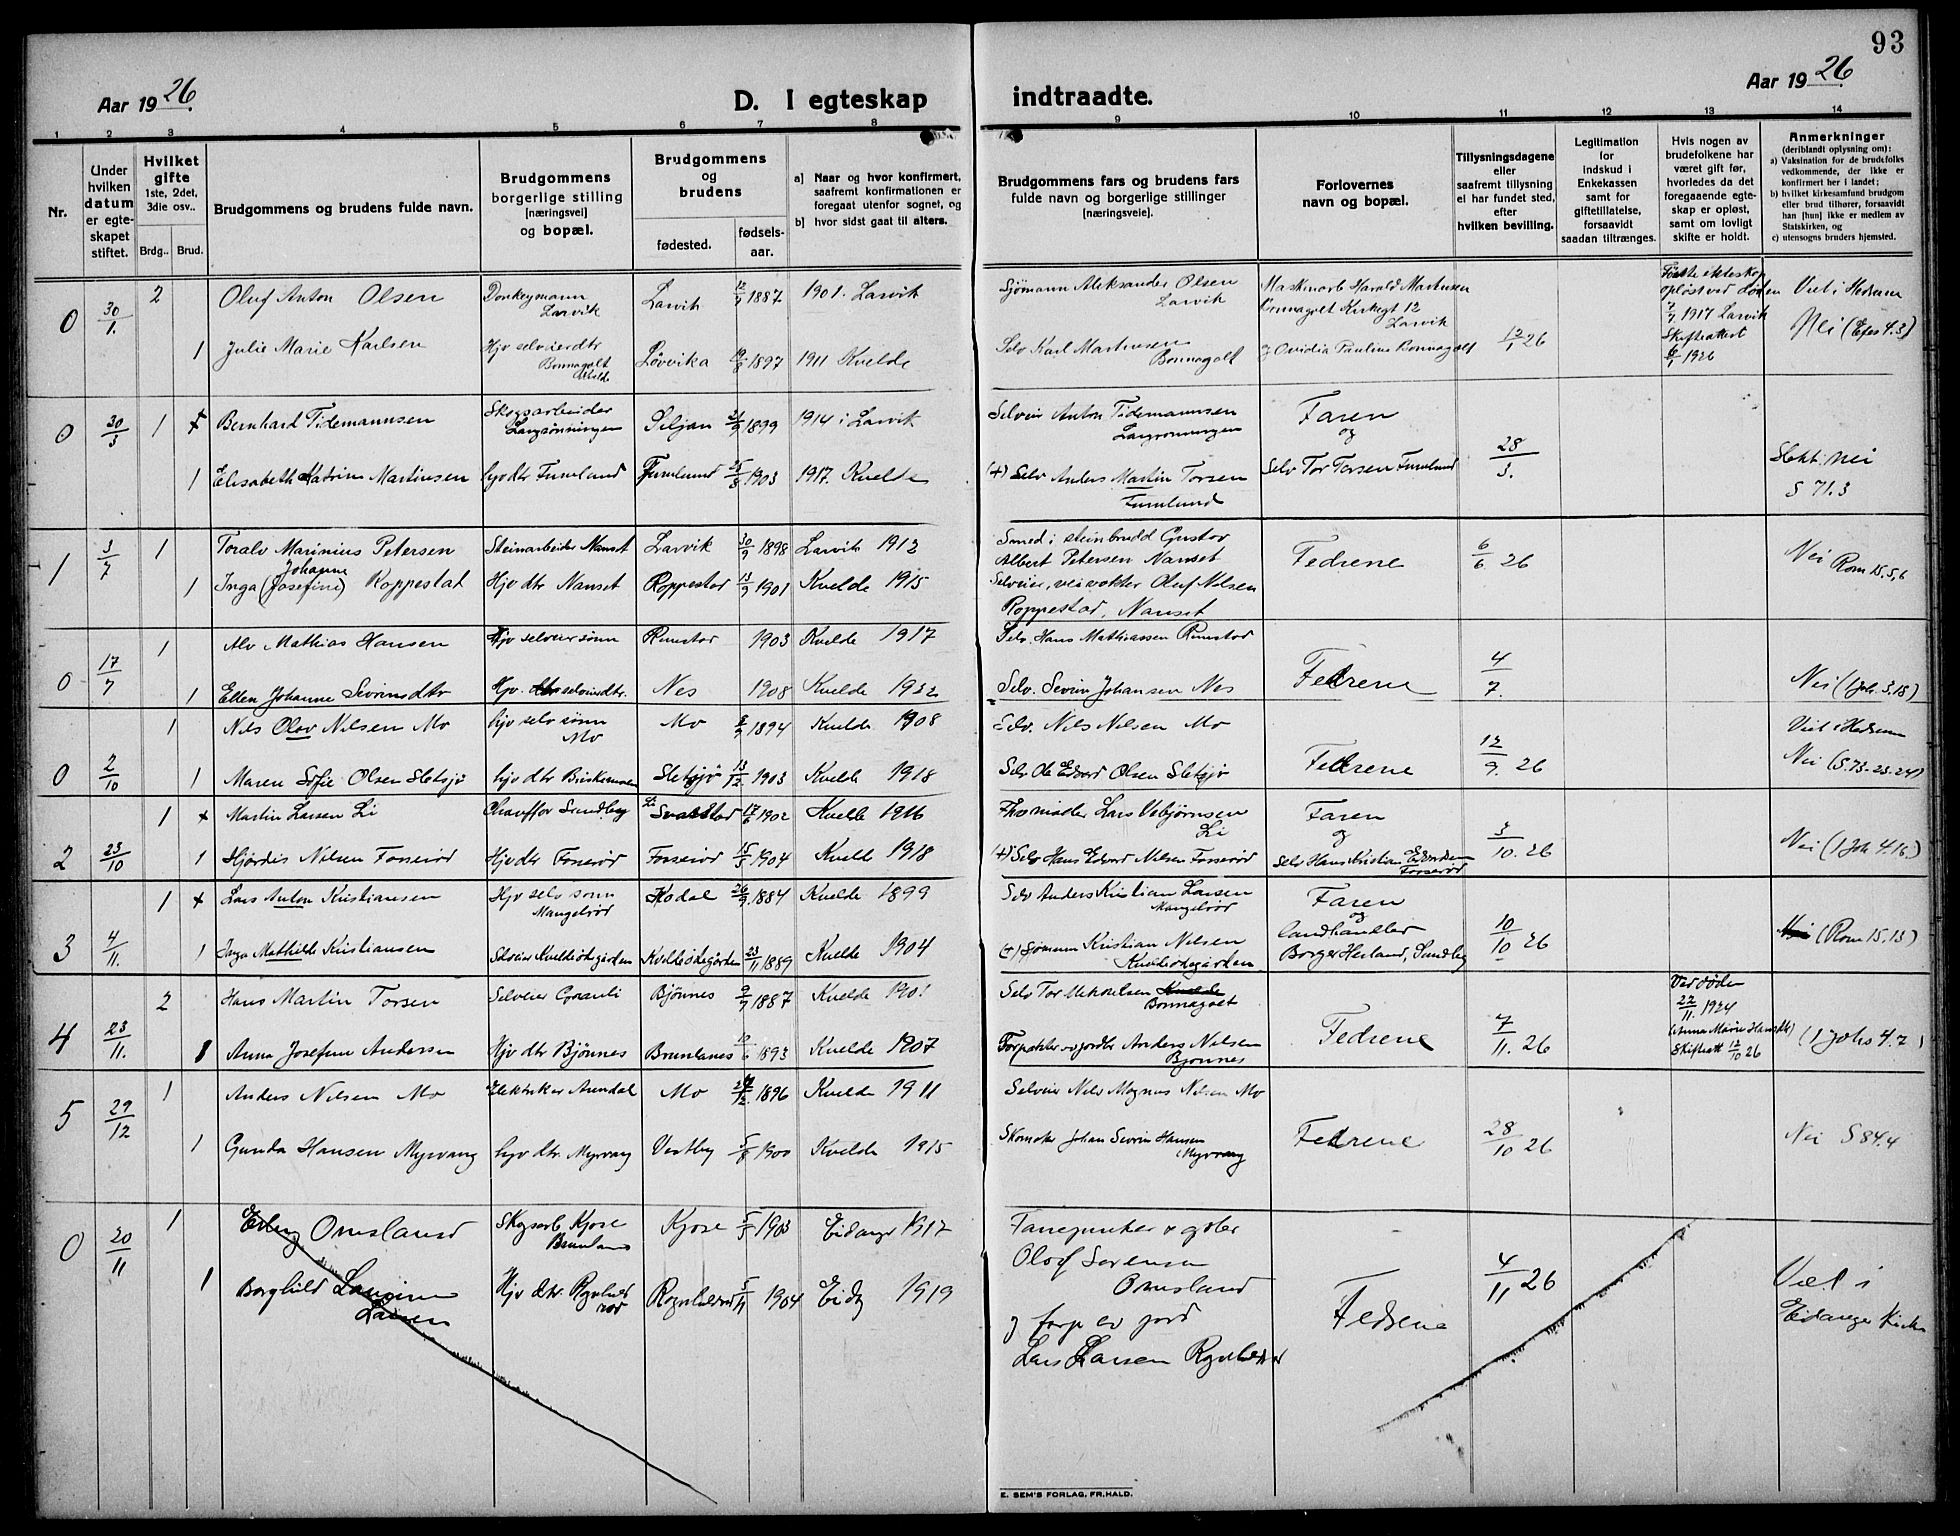 93
Aar 1926.
D. I egteskap indtraadte.
Aar 1926.
1 2 3 4 5 6 7 8 9 10 11 12 13 14
Nr.
Under hvilken datum er egteskapet stiftet.
Hvilket gifte
1ste, 2det, 3die osv..
Brdg.. Brud.
Brudgommens og brudens fulde navn.
Brudgommens borgerlige stilling [næringsvei] og bopæl.
Brudgommens og brudens
fødested.
fødsels-aar.
a) Naar og hvor konfirmert, saafremt konfirmationen er foregaat utenfor sognet, og
b) hvor sidst gaat til alters.
Brudgommens fars og brudens fars fulde navn og borgerlige stillinger [næringsveie].
Forlovernes navn og bopæl.
Tillysningsdagene eller saafremt tillysning ei har fundet sted, efter hvilken bevilling.
Legitimation for indskud i Enkekassen samt for giftetillatelse, forsaavidt saadan tiltrænges.
Hvis nogen av brudefolkene har været gift før, hvorledes da det foregaaende egteskap er opløst, samt om lovligt skifte er holdt.
Anmerkninger
(deriblandt oplysning om):
a) Vaksination for de brudefolks vedkommende, der ikke er konfirmert her i landet;
b) hvilket kirkesamfund brudgom eller brud tilhører, forsaavidt han [hun] ikke er medlem av Statskirken, og
c) utensogns bruders hjemsted.
0 30/1. 2 Oluf Anton Olsen Donkeymann Larvik Larvik 1887 1901. Larvik Sjømann Aleksander Olsen Larvik
1 Julie Marie Karlsen Hjv selveierdtr Bonnagolt Løvvika 1897 1911 Kvelde Selv Karl Martinsen Bonnagolt
Maskinarb Harald Martinsen Bonnagolt Kirkegt 12 Larvik
og Ovidia Pauline Bonnagolt
12/1 26
Første ekteskap opløst ved døden 1917 Larvik Skifteattest 1926
Viet i Hedrum
Nei (Efes 4.3)
0 30/3 1 + Bernhard Tidemannsen Skogsarbeider Siljan 1899 1914 i Larvik Selveier Anton Tidemannsen
1 Elisabeth Katrine Martinsen hjv dtr Fumlund Fumlund 1903 1917. Kvelde (+) Selv Anders Martin Torsen Fumlund
Faren og Selv Tor Torsen Fumlund
28/3.
Slekt: Nei
S 71.3
1 3/7 1 Toralv Marinius Petersen Steinarbeider Nanset Larvik 30/9 1898 Larvik 1912 Smed i steinbrudd Gustav Albert Petersen Nanset
1 Inga (Josefine) Johanne Roppestat Hjv dtr Nanset Roppestad 13/9 1901 Kvelde 1915 Selveier, veivokter Oluf Nilsen Roppestad, Nanset
Fedrene
6/6 26
Nei Rom 15.5,6
0 17/7 1 Alv Mathias Hansen Hjv selveiersønn Rimstad 1903 Kvelde 1917 Selv. Hans Mathiassen Rimstad
1 Ellen Johanne Sevrinsdtr Hjv. selveierdtr. Nes 1908 Kvelde 1922 Selv. Sevrin Johansen Nes
Fedrene
4/7.
Nei (1 Joh. 3.18)
0 2/10 1 Nils Olav Nilsen Mo hjv selv sønn Mo Mo 1894 Kvelde 1908 Selv. Nils Nilsen Mo
1 Maren Sofie Olsen Sletsjø hjv dtr Sletsjø 13/12. 1903 Kvelde 1918 Selv Ole Edvard Olsen Sletsjø
Fedrene
12/9. 26
Viet i Hedrum
Nei (S.73.23.24)
2 23/10 1 + Martin Larsen Li Chauffør Sundby 17/6 1902 Kvelde 1916 Lars Vebjørnsen Li
1 Hjørdis Nilsen Fosserød Hjv dtr Fosserød Fosserød 15/5 1904 Kvelde 1918 (+) Selv Hans Edvard Nilsen Fosserød
Faren og Selv Hans Kristian Edvardsen Fosserød
3/10. 26
Nei (1 Joh 4 16.)
3 4/11. 1 + Lars Anton Kristiansen Hjv selv sønn Mangelrød Kodal 26/9. 1884 Kvelde 1899 Selv Anders Kristian Larsen Mangelrød
1 Inga Mathilde Kristiansen Selveier Kveldeødegården Kveldeødegården 23/11 1889 Kvelde 1904 (+) Sømann Kristian Nilsen Kveldeødegården
Faren og landhandler Borger Herland, Sundby
10/10 26
(Rom 15,13)
4 23/11. 2 Hans Martin Torsen Selveier Granli Bjønnes 9/7 1887 Kvelde 1901 Selv Tor Mikkelsen Bonnagolt
1 Anna Josefine Andersen Hjv dtr Bjønnes Brunlanes 10/6 1893 Kvelde 1907 Forpakter av jord Anders Nilsen Bjønnes
Fedrene
7/11. 26
Ved døden 22/11. 1924 (Anna Marie Hansdtr) Skifteatt 12/10 26
(1 Johs 4.7)
5 29/12 1 Anders Nilsen Mo Elektriker Arendal Mo 1896 Kvelde 1911 Selveier Nils Magnus Nilsen Mo
1 Gunda Hansen Myrvang hjv dtr. Myrvang Vestby 5/8 1900 Kvelde 1915 Skomaker Johan Sevrin Hansen Myrvang
Fedrene
28/10 26
Nei S 84.4
0 20/11 1 Erling Omsland Skogsarb Kjose Brunlanes Kjose 5/5 1903 Eidanger 1917 Olof Sørensen Omsland
1 Borghild Lovise Larsen Hjv dtr. 5/11 1904 Eidg 1919 og forp av jord Lars Larsen
Fedrene
4/11 26
Viet i Eidanger Kirke
E. SEM'S FORLAG, FR.HALD.